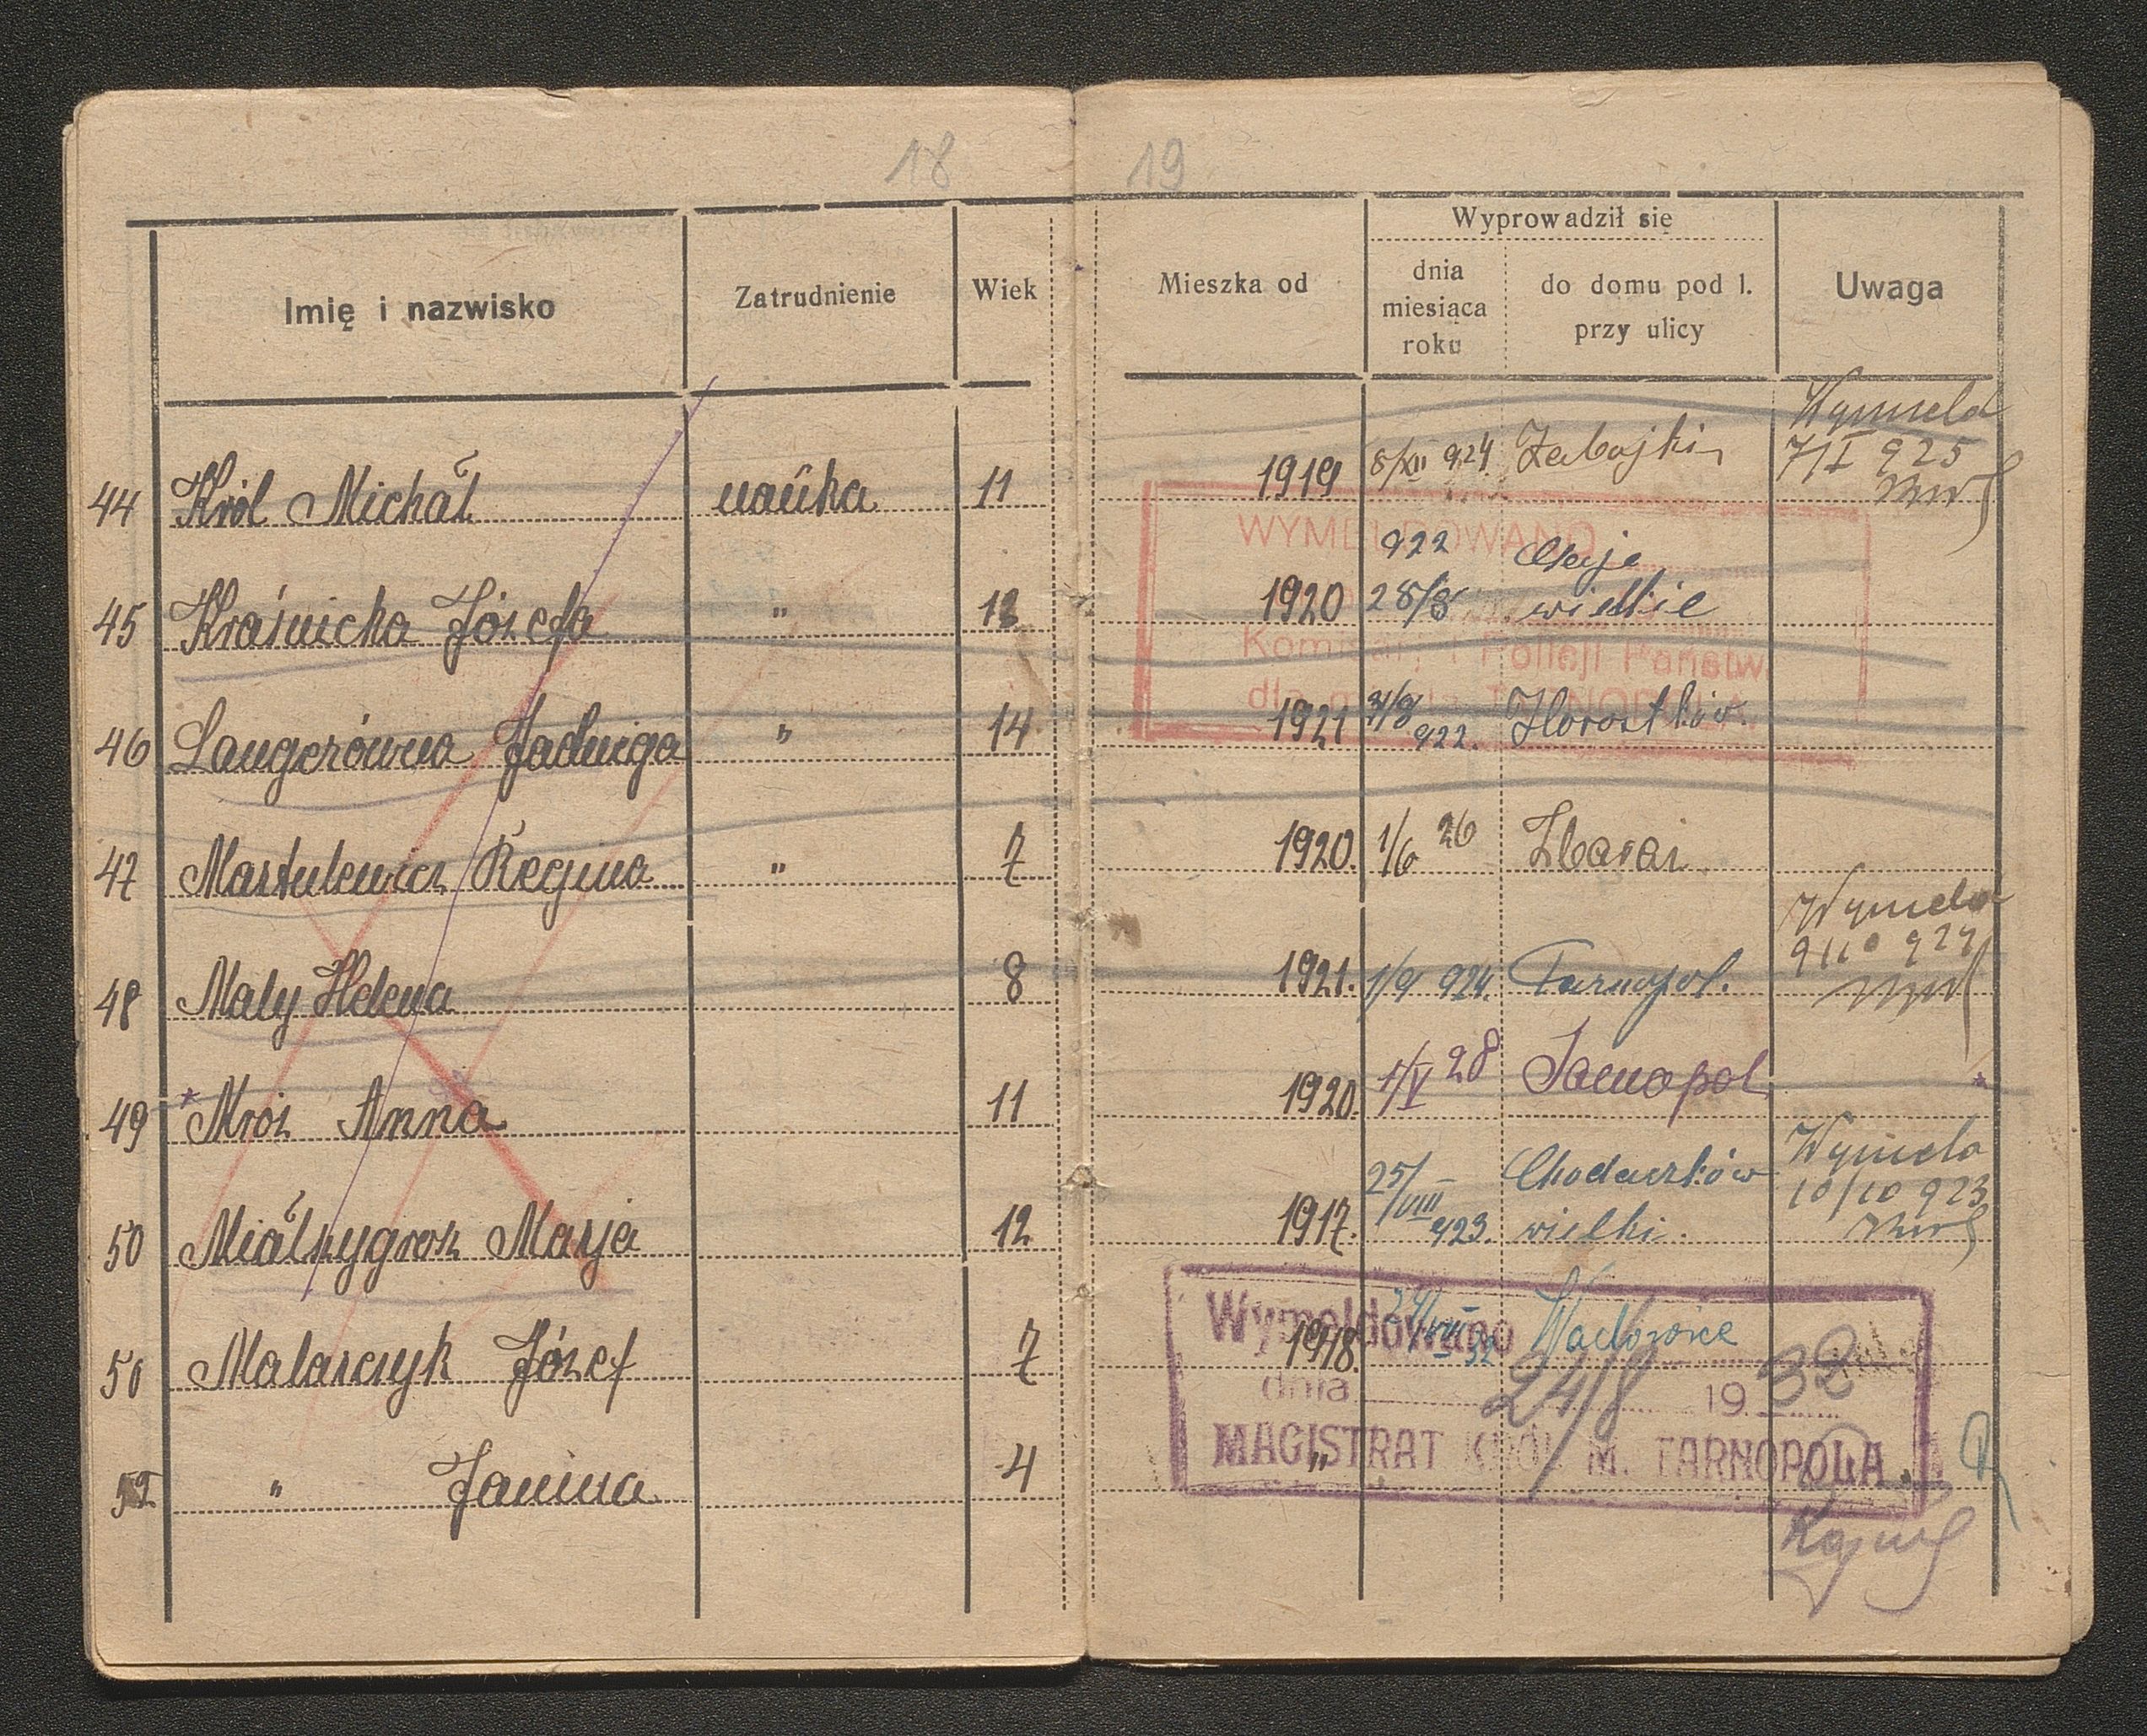 18 19
Imię i nazwisko Zatrudnienie Wiek Mieszka od Wyprowadził się Uwaga
dnia miesiąca roku do domu pod l. przy ulicy
Wymeld
44 Król Michał nauka 11 1919 8/XII 924 Zabojki 7/I 925
WYMELDOWANO
922
45 Kraśnicka Józefa " 12 1920 28/8 wielkie
Komisarj. Policji Państw.
dla miasta TARNOPOLA
46 Langerówna Jadwiga " 14 1921 31/8 922. Horostków
47 Martulewicz Regina " 7 1920. 1/6 26 Zbaraż
Wymeld
48 Mały Helena 8 1921. 1/9 924. Tarnopol. 9/10 924
49 * Mróz Anna 11 1920. 1/V 28 Tarnopol *
Chodaczków Wymeld
50 Miałkygroz Marja 12 1917. 25/VIII 923. wielki. 10/10 923
Wymeldowano
50 Malarczyk Józef 7 1918. 24/VIII 32 Wadowice
dnia 24/8 1932
MAGISTRAT KRÓL. M. TARNOPOLA
" Janina 4 "